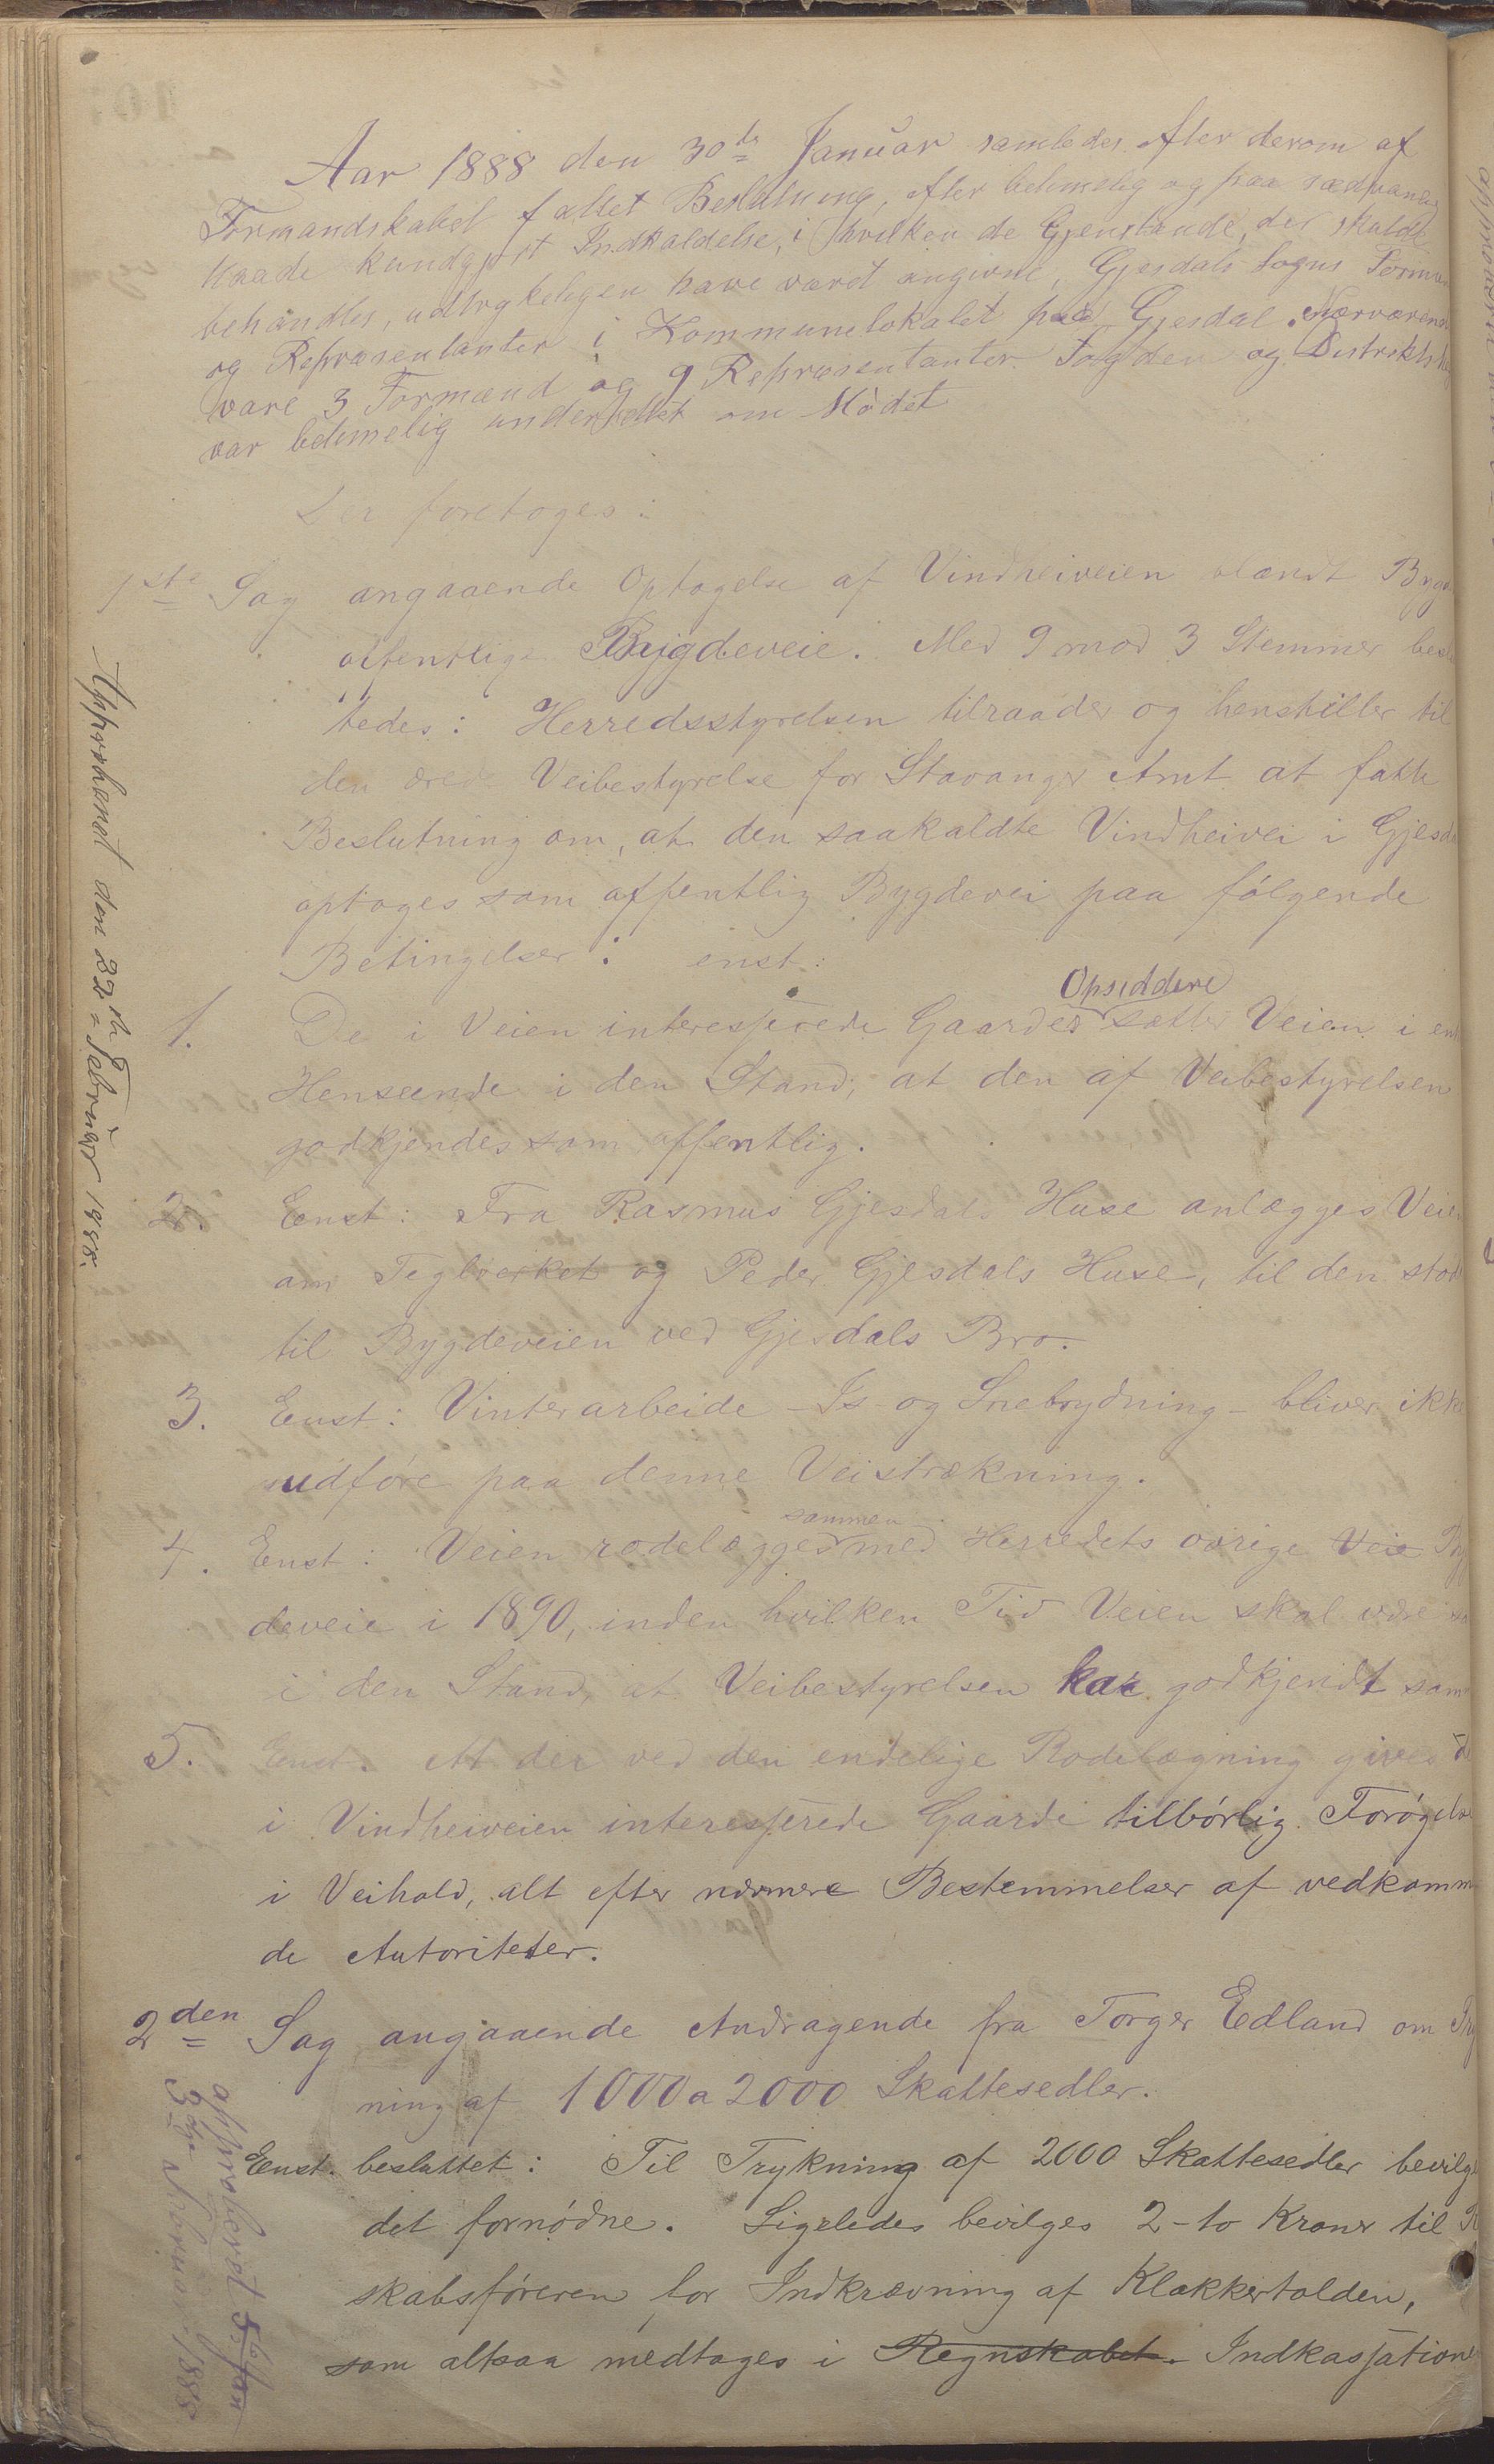 Aar 1888 den 30de Januar samledes efter derom af
Formandskabet fattet Beslutning, efter betimelig og paa sædvanlig
Maade kundgjort Indkaldelse, i hvilken de Gjenstande, der skulde
behandles, udtrykkeligen have været angivne, Gjesdals Sogns Formæn
og Repræsentanter i Kommunelokalet paa Gjesdal. Nærværende
vare 3 Formænd og 9 Repræsentanter. Fogden og Distrikts
var betimelig underrettet om Mödet
Der foretoges:
1ste Sag angaaende Optagelse af Vindheiveien blandt Bygd
offentlige Bygdeveie. Med 9 mod 3 Stemmer beslu
tedes: Herredsstyrelsen tilraader og henstiller til
den ærede Veibestyrelse for Stavanger Amt at fatte
Beslutning om, at den saakaldte Vindheivei i Gjesda
optages som offentlig Bygdevei paa fölgende
Betingelser: enst:
Opsiddere
1. De i Veien interesserede Gaardes sætter Veien i en
Henseende i den Stand, at den af Veibestyrelsen
godkjendes som offentlig.
2. Eenst: Fra Rasmus Gjesdals Huse anlægges Veie
om Teglverket og Peder Gjesdals Huse, til den stöd
til Bygdeveien ved Gjesdals Bro.
3. Eenst: Vinterarbeide - Is- og Snebrydning - bliver ikke
udföre paa denne Veistrækning.
sammen
4. Eenst: Veien rodelægges med Herredets övrige Veie Byg
deveie i 1890, inden hvilken Tid Veien skal være
i den Stand, at Veibestyrelsen har godkjendt sam
5. Eenst. At der ved den endelige Rodelægning gives d
i Vindheiveien interesserede Gaarde tilbörlig Forögelse
i Veihold, alt efter nærmere Bestemmelser af vedkomm
de Autoriteter.
2den Sag angaaende Andragende fra Torger Edland om Try
ning af 1000 a 2000 Skattesedler.
Eenst. besluttet: Til Trykning af 2000 Skattesedler bevilge
det fornödne. Ligeledes bevilges 2 - to Kroner til R
skabsföreren for Indkrævning af Klokkertolden,
som altsaa medtages i Regnskabet. Indkassation
Approberet den 22de Februar 1888.
approberet
3die Februar 1888